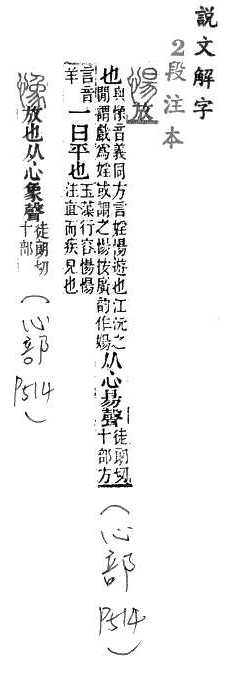 說文解字
2段注本
愓放
也與㦽音義同方言媱愓遊也江沅之
閒謂戲爲媱或謂之愓按廣韵作婸
从心昜聲徒朗切
十部方
(心部 P514)
言音
羊
一曰平也玉藻行容愓愓
注直而疾皃也
㦽放也从心象聲徒朗切
十部
(心部 P514)